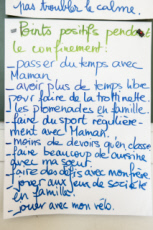 pas troubler le calme.
- Points positifs pendant
le confinement:
- passer du temps avec
Maman
- avoir plus de temps libre
pour faire de la trottinette
les promenades en famille.
- faire du sport régulière-
ment avec Maman.
- moins de devoirs qu'en classe
- faire beaucoup de cuisine
avec ma sœur.
- faire des défis avec mon frère
- jouer aux jeux de société
en famille.
- jouer avec mon vélo.